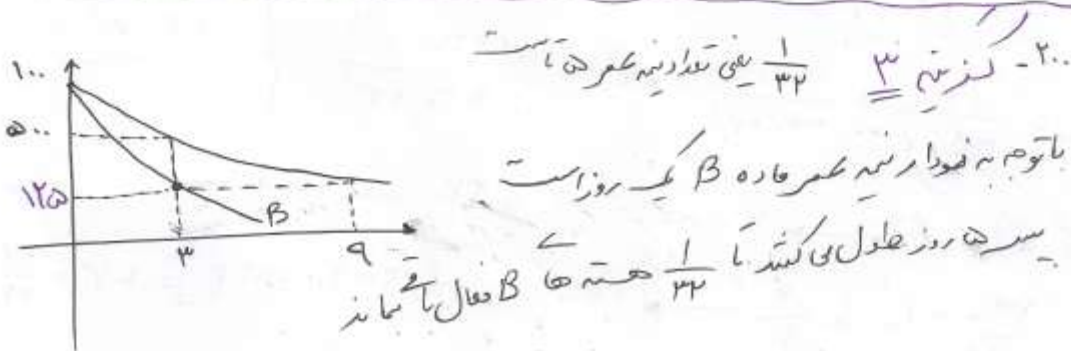 ۲۰۰- گزینه ۳ ۱/۳۲ یعنی تعداد نیمه عمر ۵ تا است
با توجه به نمودار نیمه عمر ماده B یک روز است
پس ۵ روز طول می کشد تا ۱/۳۲ هسته ها B فعال باقی بماند
۱۰۰۰
۵۰۰
۱۲۵
B
۳
۹